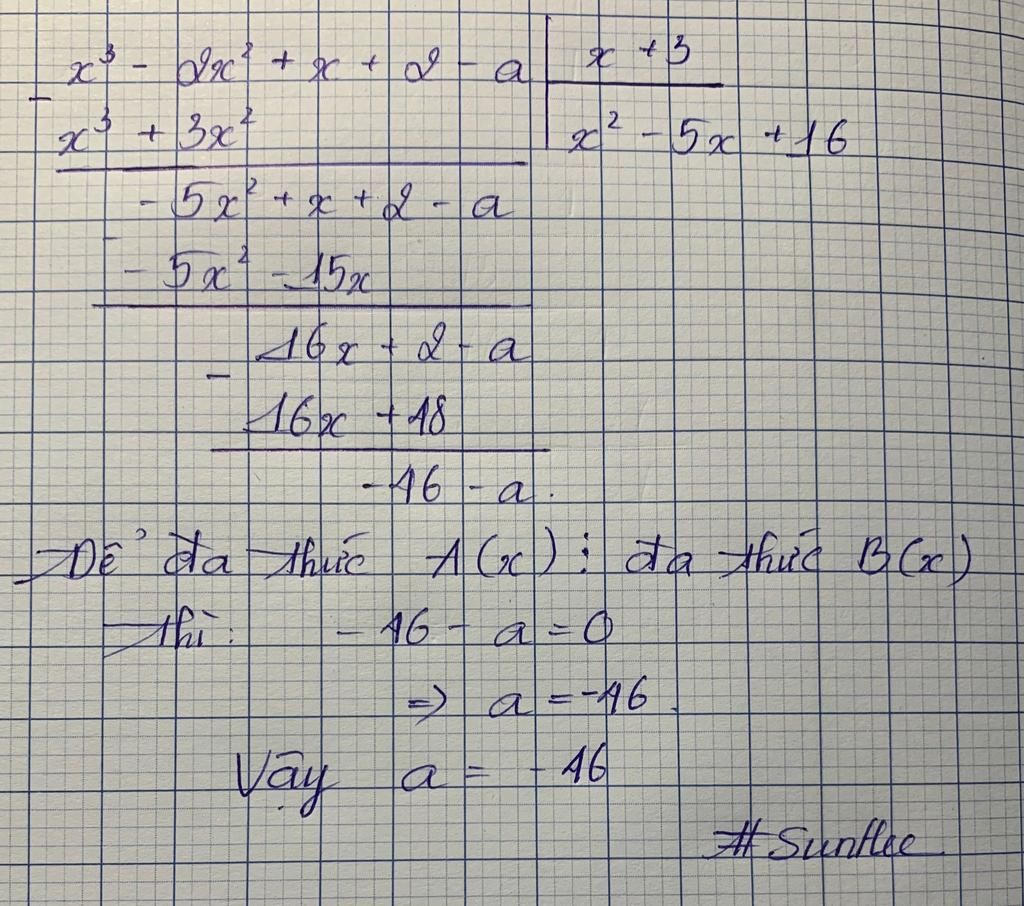 x³ - 2x² + x + 2 - a | x + 3
- x³ + 3x² | x² - 5x + 16
- 5x² + x + 2 - a
- - 5x² - 15x
16x + 2 - a
- 16x + 48
-46 - a.
Để đa thức A(x) ⋮ đa thức B(x)
thì: -46 - a = 0
=> a = -46.
Vậy a = -46
#Sunflee